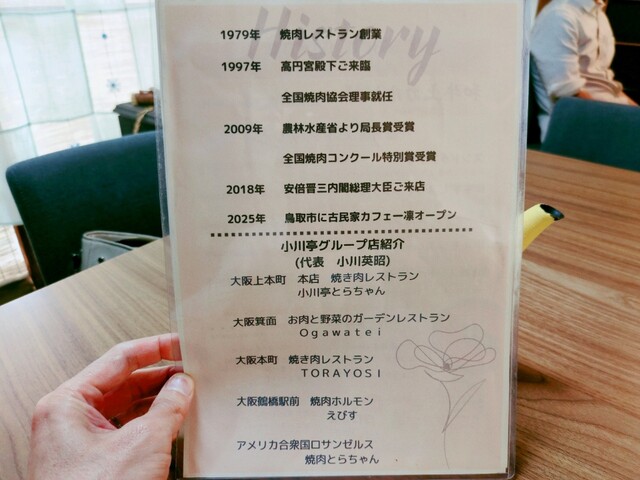 History
1979年 焼肉レストラン創業
1997年 高円宮殿下ご来臨
全国焼肉協会理事就任
2009年 農林水産省より局長賞受賞
全国焼肉コンクール特別賞受賞
2018年 安倍晋三内閣総理大臣ご来店
2025年 鳥取市に古民家カフェー凛オープン
小川亭グループ店紹介
(代表 小川英昭)
大阪上本町 本店 焼き肉レストラン
小川亭とらちゃん
大阪箕面 お肉と野菜のガーデンレストラン
Ogawatei
大阪本町 焼き肉レストラン
TORAYOSI
大阪鶴橋駅前 焼肉ホルモン
えびす
アメリカ合衆国ロサンゼルス
焼肉とらちゃん